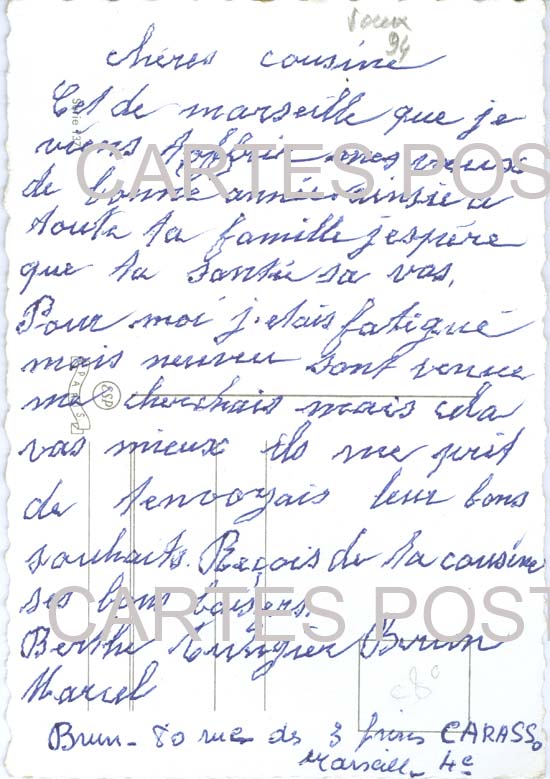 Voeux
94
chères cousine
Cet de marseille que je
viens t'offrir mes voeux
de bonne année ainsie a
toute ta famille j'espère
que ta santé sa vas.
Pour moi j'etais fatigué
mais neuveu sont venue
me cherchais mais cela
vas mieux ils me prit
de t'envoyais leur bons
souhaits. Reçois de ta cousine
ses bons baisers.
Berthe Brun
Marcel
Brun - 80 rue des 3 frères CARASSO
Marseille 4e
Série 437
PARIS
SSP
c8°
CARTES POST
CARTES POST